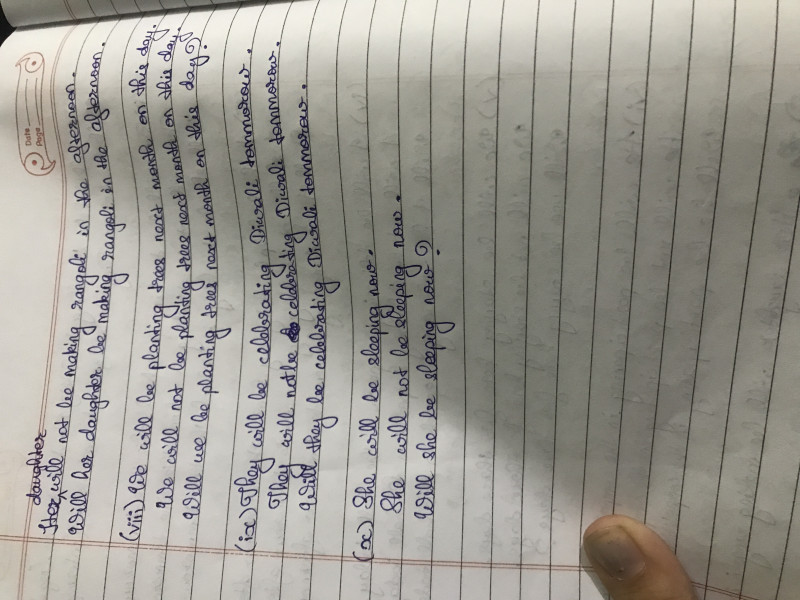 Date
Page
daughter
Her will not be making rangoli in the afternoon.
Will her daughter be making rangoli in the afternoon.
(viii) We will be planting trees next month on this day.
We will not be planting trees next month on this day.
Will we be planting trees next month on this day?
(ix) They will be celebrating Diwali tommorow.
They will notbe celebrating Diwali tommorow.
Will they be celebrating Diwali tommorow.
(x) She will be sleeping now.
She will not be sleeping now.
Will she be sleeping now?